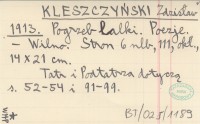 KLESZCZYŃSKI Zdzisław
1913. Pogrzeb Lalki. Poezje.
– Wilno. Stron 6 nlb, 111, okł.,
14 X 21 cm.
Tata i Portatrza dotyczą
s. 52-54 i 91-99.
BT/025/1159